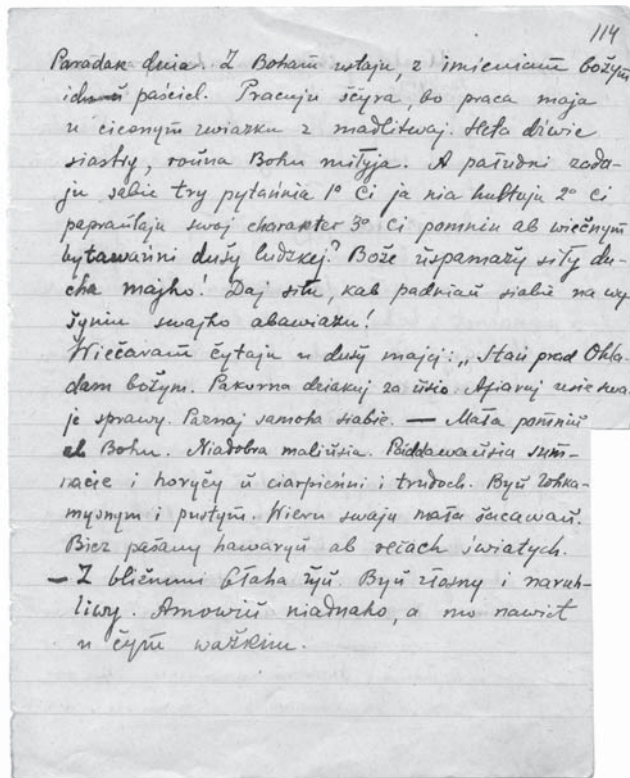 114
Paradak dnia. Z Boham ustaju, z imieniam božym
paściel. Pracuju ščyra, bo praca maja
u ciesnym zwiazku z madlitwaj. Heta dźwie
siastry, roŭna Bohu miłyja. A paŭudni zada-
ju sabie try pytańnia 1º Ci ja nia hultuju 2º ci
papraŭlaju swoj charakter 3º Ci pomniu ab wiečnym
bytawańni dušy ludzkej? Boža ŭspamažy siły du-
cha majho! Daj siłu, kab padniaŭ siabie na wy
šyniu swajho abawiazu!
Wiečaram čytaju u dušy majej: „Stań prad Ohla-
dam božym. Pakorna dziakuj za ŭsio. Afiaruj usie swa-
je sprawy. Paznaj samoha siabie. — Mała pomniŭ
ab Bohu. Niadobra maliŭsia. Paddawaŭsia sum-
i horyčy ŭ ciarpieńni i trudoch. Byŭ
i pustym. Wieru swaju mała šacawaŭ.
Biez pašany hawaryŭ ab rečach światych.
— Z bližnimi błaha žyŭ. Byŭ złosny i naruh-
liwy. Amowiŭ niadnaho, a mo nawiet
u čym važkim.